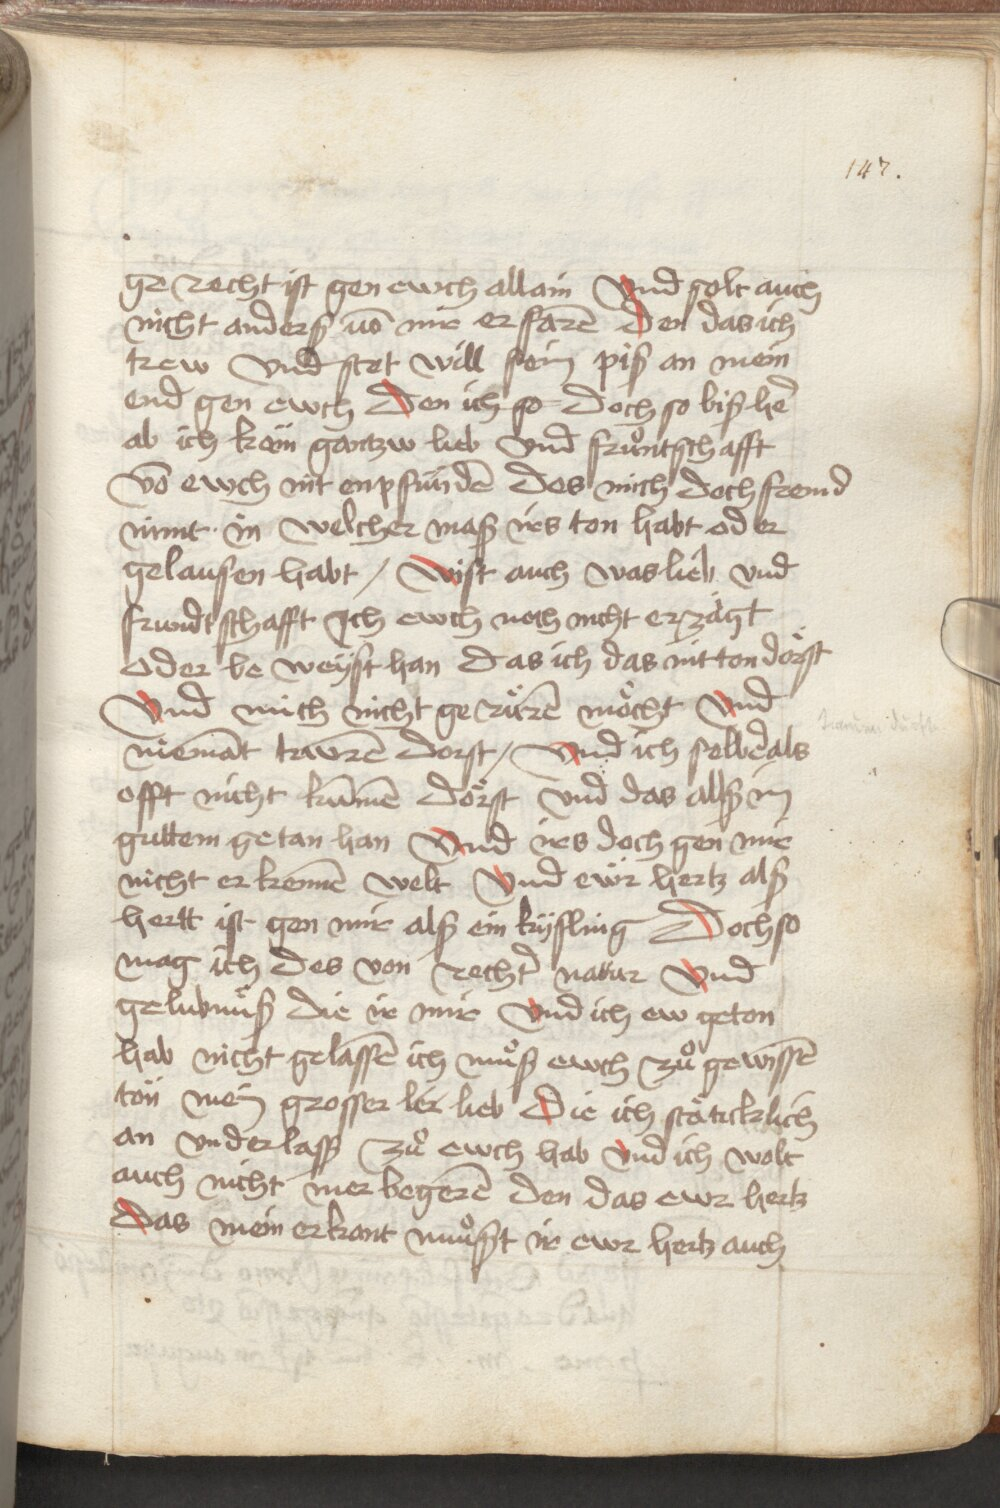 147.
ge recht ist gen ewch allain Vnd solt auch
nicht anderß vō mir erfarē Den das ich
trew Vnd stet will sein piß an mein
end gen ewch Den ich so doch so bißher
ab ich kein gantzw lieb Vnd frúntschafft
Vō ewch nit enpfundē Des mich doch fremd
nimt in welcher maß irs ton habt oder
gelausen habt / Wist auch was lieb vnd
frundtschafft Ich ewch noch nicht erzägt
oder be weÿst han Das ich das nit ton dörst
Vnd mich nicht ge rürē möcht Vnd
niemāt trawrē dorst / Vnd ich selbe als
offt nicht kūmē dörst Vnd das allß in
guttem getan han Vnd irs doch gen mir
nicht erkennē welt Vnd ewr hertz alß
hertt ist gen mir alß ein kÿsling Doch so
mag ich des von recht' natur Vnd
gelubnuß die ir mir Vnd ich ew geton
hab nicht gelassē ich můß ewch zů gewissē
tön mein grosser ler lieb Die ich stäticklich
an vnderlaß zů ewch hab Vnd ich wolt
auch nicht mer begerē den das ewr hertz
Das mein erkant můßt ir ewr hertz auch